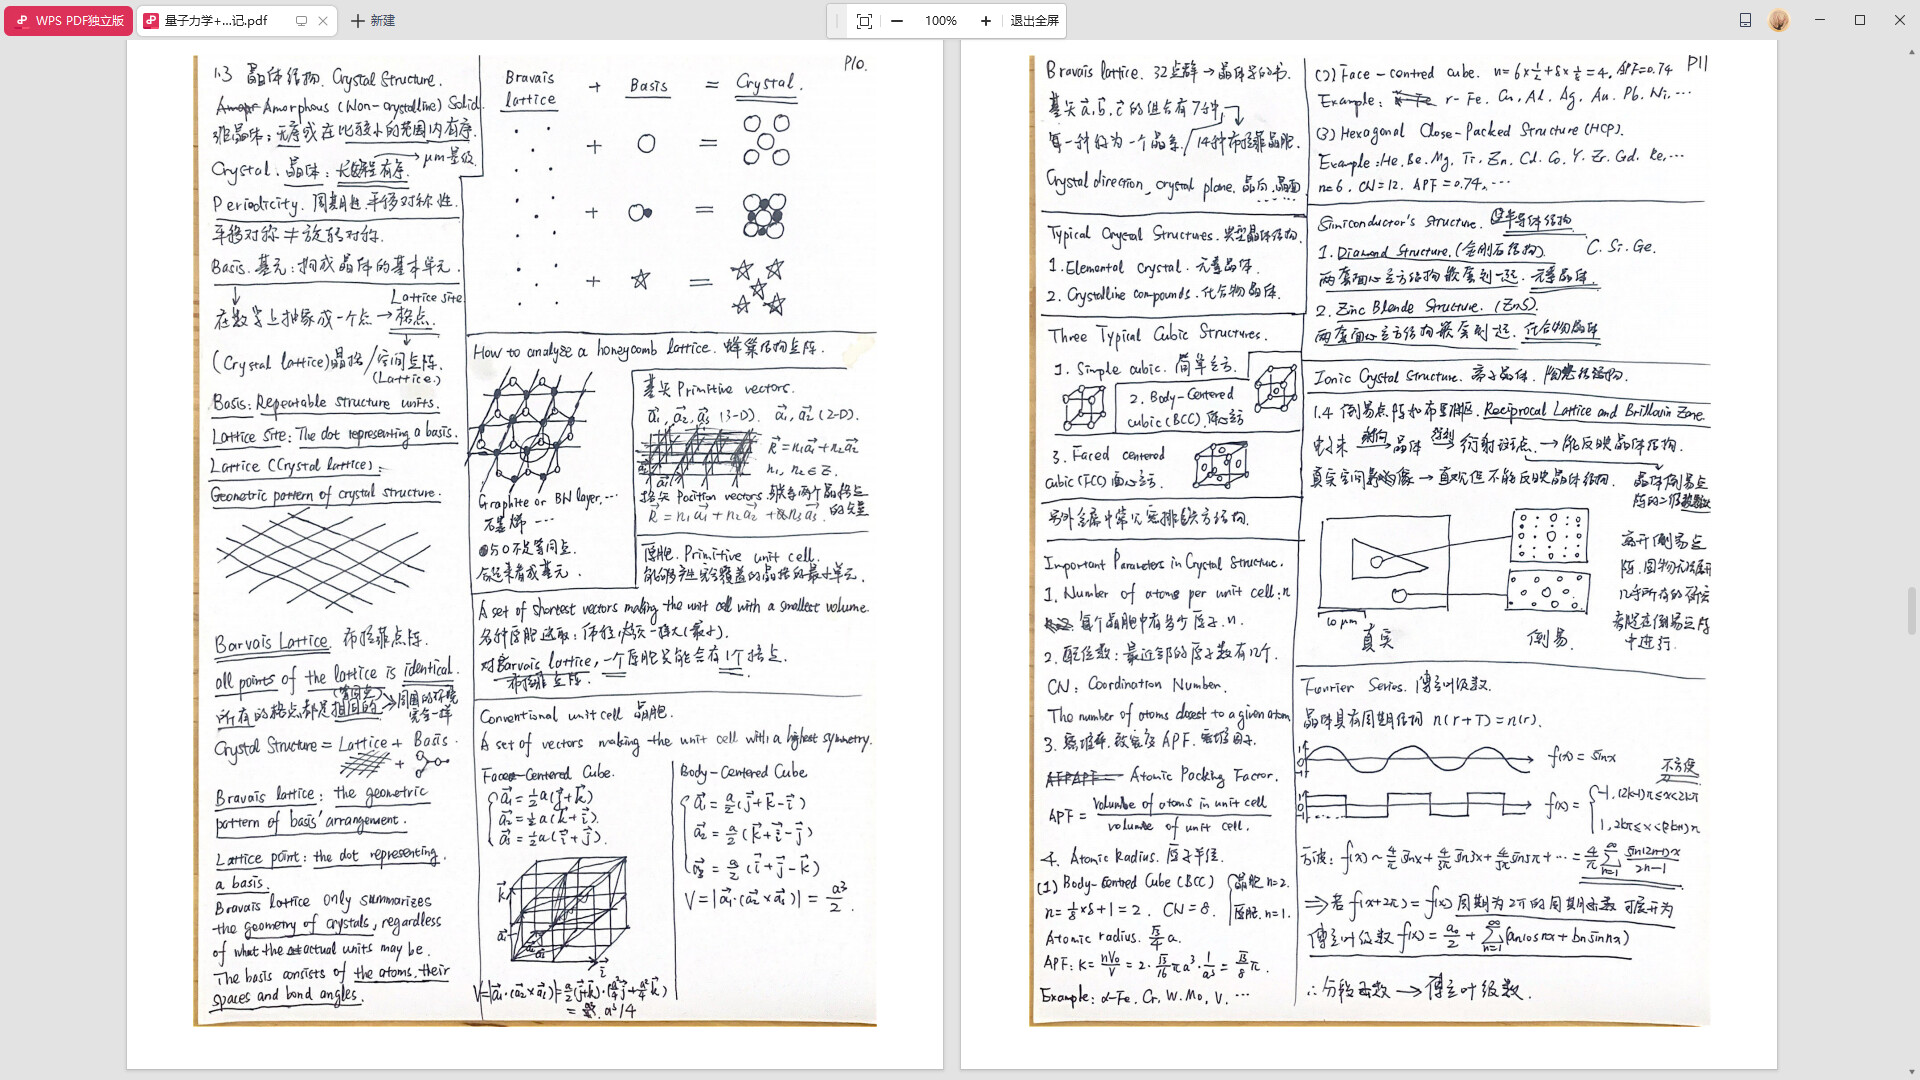 WPS PDF独立版
量子力学+...记.pdf
新建
100%
退出全屏
P10.
1.3 晶体结构. Crystal Structure.
Amorphous (Non-crystalline) Solid.
非晶体: 无序或在比较小的范围内有序.
→ μm量级.
Crystal. 晶体: 长程有序.
Periodicity. 周期性. 平移对称性.
平移对称 ≠ 旋转对称.
Basis. 基元: 构成晶体的基本单元.
Lattice site
在数学上抽象成一个点 → 格点.
(Crystal lattice) 晶格/空间点阵.
(Lattice.)
Basis: Repeatable structure units.
Lattice Site: The dot representing a basis.
Lattice (Crystal lattice):
Geometric pattern of crystal structure.
Barvais Lattice. 布拉菲点阵.
all points of the lattice is identical.
(等同点)
所有的格点都是相同的 → 周围的环境完全一样
Crystal Structure = Lattice + Basis.
Bravais lattice: the geometric
pattern of basis' arrangement.
Lattice point: the dot representing
a basis.
Bravais lattice only summarizes
the geometry of crystals, regardless
of what the actual units may be.
The basis consists of the atoms, their
spaces and bond angles.
Bravais lattice + Basis = Crystal.
How to analyze a honeycomb lattice. 蜂巢结构点阵.
Graphite or BN layer, ...
石墨烯 ...
●与○不是等同点.
合起来看成基元.
基矢 Primitive vectors.
a₁, a₂, a₃ (3-D). a₁, a₂ (2-D).
R = n₁a₁ + n₂a₂
n₁, n₂ ∈ Z.
格矢 Position vectors. 联系两个晶格点的矢量
R = n₁a₁ + n₂a₂ + n₃a₃.
原胞. Primitive unit cell.
能够产生完全覆盖的晶格的最小单元.
A set of shortest vectors making the unit cell with a smallest volume.
对Barvais lattice, 一个原胞只能会有1个格点.
布拉菲点阵.
Conventional unit cell 晶胞.
A set of vectors making the unit cell with a highest symmetry.
Face-Centered Cube.
a₁ = ½a(j+k)
a₂ = ½a(k+i).
a₃ = ½a(i+j).
k
a₁
i
V=|a₁·(a₂×a₃)| = a/2(j+k)·(a²/4 j + a²/4 k)
= a³/4
Body-Centered Cube
a₁ = a/2(j+k-i)
a₂ = a/2(k+i-j)
a₃ = a/2(i+j-k)
V = |a₁·(a₂×a₃)| = a³/2.
P11
Bravais lattice. 32点群 →
基矢a,b,c的组合有7种,
每一种称为一个晶系. 14种布拉菲晶胞.
Crystal direction, crystal plane. 晶向, 晶面
Typical Crystal Structures. 典型晶体结构.
1. Elemental crystal. 元素晶体.
2. Crystalline compounds. 化合物晶体.
Three Typical Cubic Structures.
1. Simple cubic. 简单立方.
2. Body-Centered
cubic (BCC). 体心立方
3. Faced centered
cubic (FCC) 面心立方.
另外金属中常见密排六方结构.
Important Parameters in Crystal Structure.
1. Number of atoms per unit cell: n
每个晶胞中有多少原子. n.
2. 配位数: 最近邻的原子数有几个.
CN: Coordination Number.
The number of atoms closest to a given atom
3. 密堆率, 致密度 APF. 密堆因子.
Atomic Packing Factor.
APF = volumbe of atoms in unit cell / volumbe of unit cell.
4. Atomic Radius. 原子半径.
(1) Body-Centred Cube (BCC) 晶胞 n=2.
原胞. n=1.
n = 1/8×8+1 = 2. CN = 8.
Atomic radius. √3/4 a.
APF: K = nV₀/V = 2·√3/16 πa³·1/a³ = √3/8 π.
Example: α-Fe, Cr, W, Mo, V. ...
(2) Face-centred cube. n=6×½+8×⅛=4, APF=0.74
Example: r-Fe. Cu, Al. Ag. Au. Pb. Ni. ...
(3) Hexagonal Close-Packed Structure (HCP).
Example: He. Be. Mg. Ti. Zn. Cd. Co. Y. Zr. Gd. Re, ...
n=6. CN=12. APF=0.74, ...
Simiconductor's Structure. 半导体结构
1. Diamand Structure. (金刚石结构). C. Si. Ge.
两套面心立方结构嵌套到一起. 元素晶体.
2. Zinc Blende Structure. (ZnS).
两套面心立方结构嵌套到一起. 化合物晶体
Ionic Crystal Structure. 离子晶体.
1.4 倒易点阵和布里渊区. Reciprocal Lattice and Brillouin Zone.
电子束 射向 晶体 得到 衍射斑点. → 能反映晶体结构.
真实空间影像 → 直观但不能反映晶体结构.
晶体倒易点阵的二维
10 μm
真实
倒易.
离开倒易点
中进行.
Fourier Series. 傅立叶级数.
晶体具有周期结构 n(r+T)=n(r).
f(x) = sinx
不方便
f(x) = { -1, (2k-1)π≤x<2kπ
1, 2kπ≤x<(2k+1)π
方波: f(x) ~ 4/π sinx + 4/3π sin3x + 4/5π sin5x + ... = 4/π ∑ₙ₌₁^∞ sin(2n-1)x / 2n-1
⇒ 若 f(x+2π) = f(x) 周期为2π的周期函数可展开为
傅立叶级数 f(x) = a₀/2 + ∑ₙ₌₁^∞ (aₙcosnx + bₙsinnx)
∴ 分段函数 → 傅立叶级数.